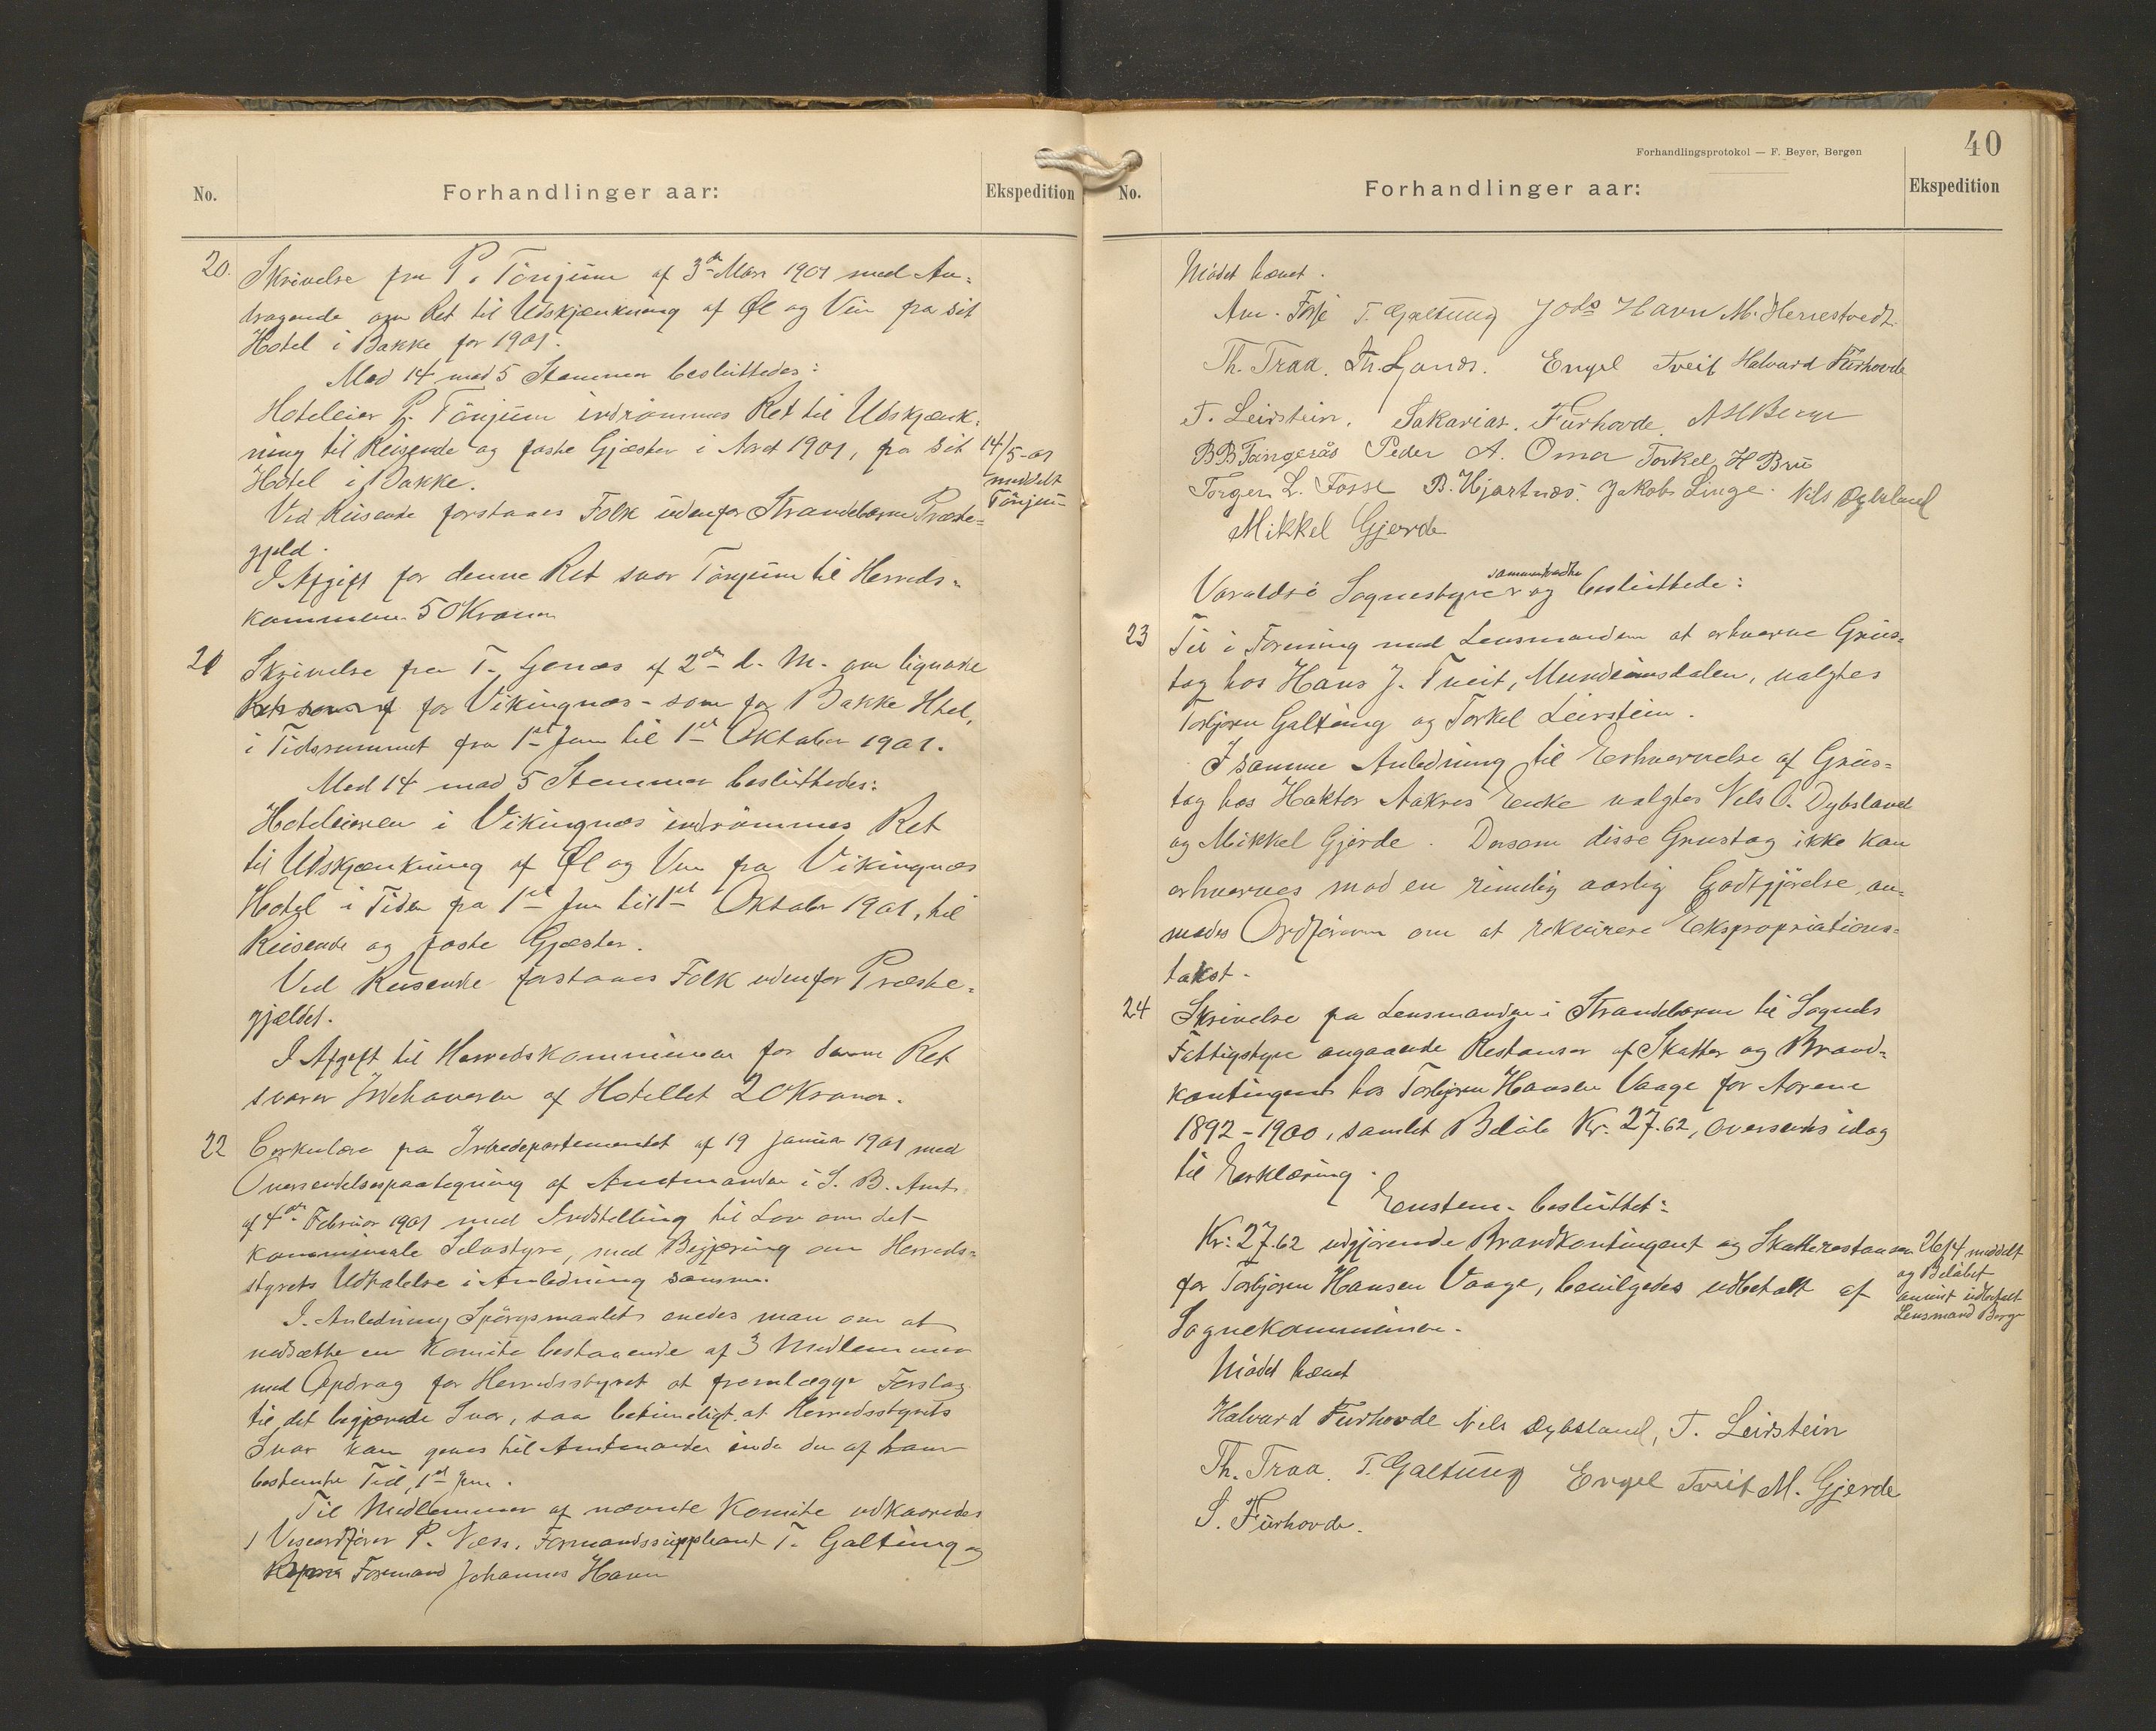 No.
Forhandlinger aar:
Ekspedition
20.
Skrivelse fra P. Tönjum af 3die Mars 1901 med An-
dragende om Ret til Udskjænkning af Øl og Vin fra sit
Hotel i Bakke for 1901.
Med 14 mod 5 Stemmer besluttedes:
Hoteleier P. Tönjum indrömmes Ret til Udskjænk-
ning til Reisende og faste Gjæster i Aaret 1901, fra sit
Hotel i Bakke.
14/5-01
meddelt
Tönjum
Ved Reisende forstaaes Folk udenfor Strandebarm Præste-
gjeld.
I Afgift for denne Ret svar Tönjum til Herreds-
kommunen 50 Kroner
21
Skrivelse fra T. af 2den d. M. om lignende
for Vikingnæs - som for Bakke Hotel,
i Tidsrummet fra 1ste Juni til 1ste Oktober 1901.
Med 14 mod 5 Stemmer besluttedes:
Hoteleieren i Vikingnæs indrömmes Ret
til Udskjænkning af Øl og Vin fra Vikingnæs
Hotel i Tiden fra 1ste Juni til 1ste Oktober 1901, til
Reisende og faste Gjæster.
Ved Reisende forstaaes Folk udenfor Præste-
gjældet.
I Afgift til Herredskommunen for denne Ret
svarer Indehaveren af Hotellet 20 Kroner.
22
Cirkulære fra Indredepartementet af 19 Januar 1901 med
Oversendelsespaategning af Amtmanden i S. B. Amt
af 4de Februar 1901 med Indstilling til Lov om det
kommunale Selvstyre, med Begjæring om Herreds-
styrets Udtalelse i Anledning samme.
I Anledning Spörgsmaalet enedes man om at
nedsætte en Komite bestaaende af 3 Medlemmer
med Opdrag for Herredsstyret at fremlægge Forslag
til det begjærede Svar, saa betimeligt at Herredsstyrets
Svar kan gives til Amtmanden inden den af ham
bestemte Tid, 1ste Juni.
Til Medlemmer af nævnte Komite udkaaredes
Viseordförer P. Næss, Formandssuppleant T. Galtung og
Formand Johannes Havn
40
Forhandlingsprotokol — F. Beyer, Bergen
No.
Forhandlinger aar:
Ekspedition
Mödet hævet.
Am. Fosse T. Galtung Johs Havn M. Herrestvedt
Th. Traa. Engel Tveit Halvard Furhovde
T. Leirstein. Sakarias. Furhovde. Berge
B B Tangerås Peder A. Oma Torkel H Bru
Torger L. Fosse B. Hjartnæs. Jakob Linge. Nils Dybsland
Mikkel Gjerde
Varaldsö Sognestyre sammentraadte og besluttede:
23
Til i Forening med Lensmanden at erhverve Grus-
tag hos Hans J. Tveit, Mundeimsdalen, valgtes
Torbjørn Galtung og Torkel Leirstein.
I samme Anledning til Erhvervelse af Grus-
tag hos Haktor Aakres Enke valgtes Nels O. Dybsland
og Mikkel Gjerde. Dersom disse Grustag ikke kan
erhverves mod en rimelig aarlig Godtgjörelse, an-
modes Ordföreren om at rekvirere Ekspropriations-
takst.
24
Skrivelse fra Lensmanden i Strandebarm til Sognets
Fattigstyre angaaende Restanser af Skatter og Brand-
kontingent hos Torbjørn Hansen Vaage for Aarene
1892 - 1900, samlet Belöb Kr. 27.62, oversendes idag
til Erklæring.
Enstem. besluttet:
Kr. 27.62 udgjörende Brandkontingent og Skatterestanser
for Torbjørn Hansen Vaage, bevilgedes udbetalt af
Sognekommunen.
26/4 meddelt
og Belöbet
anvist udbetalt
Lensmand Berge
Mödet hævet
Halvard Furhovde Nels Dybsland, T. Leirstein
Th. Traa. T. Galtung Engel Tveit M. Gjerde
S. Furhovde.